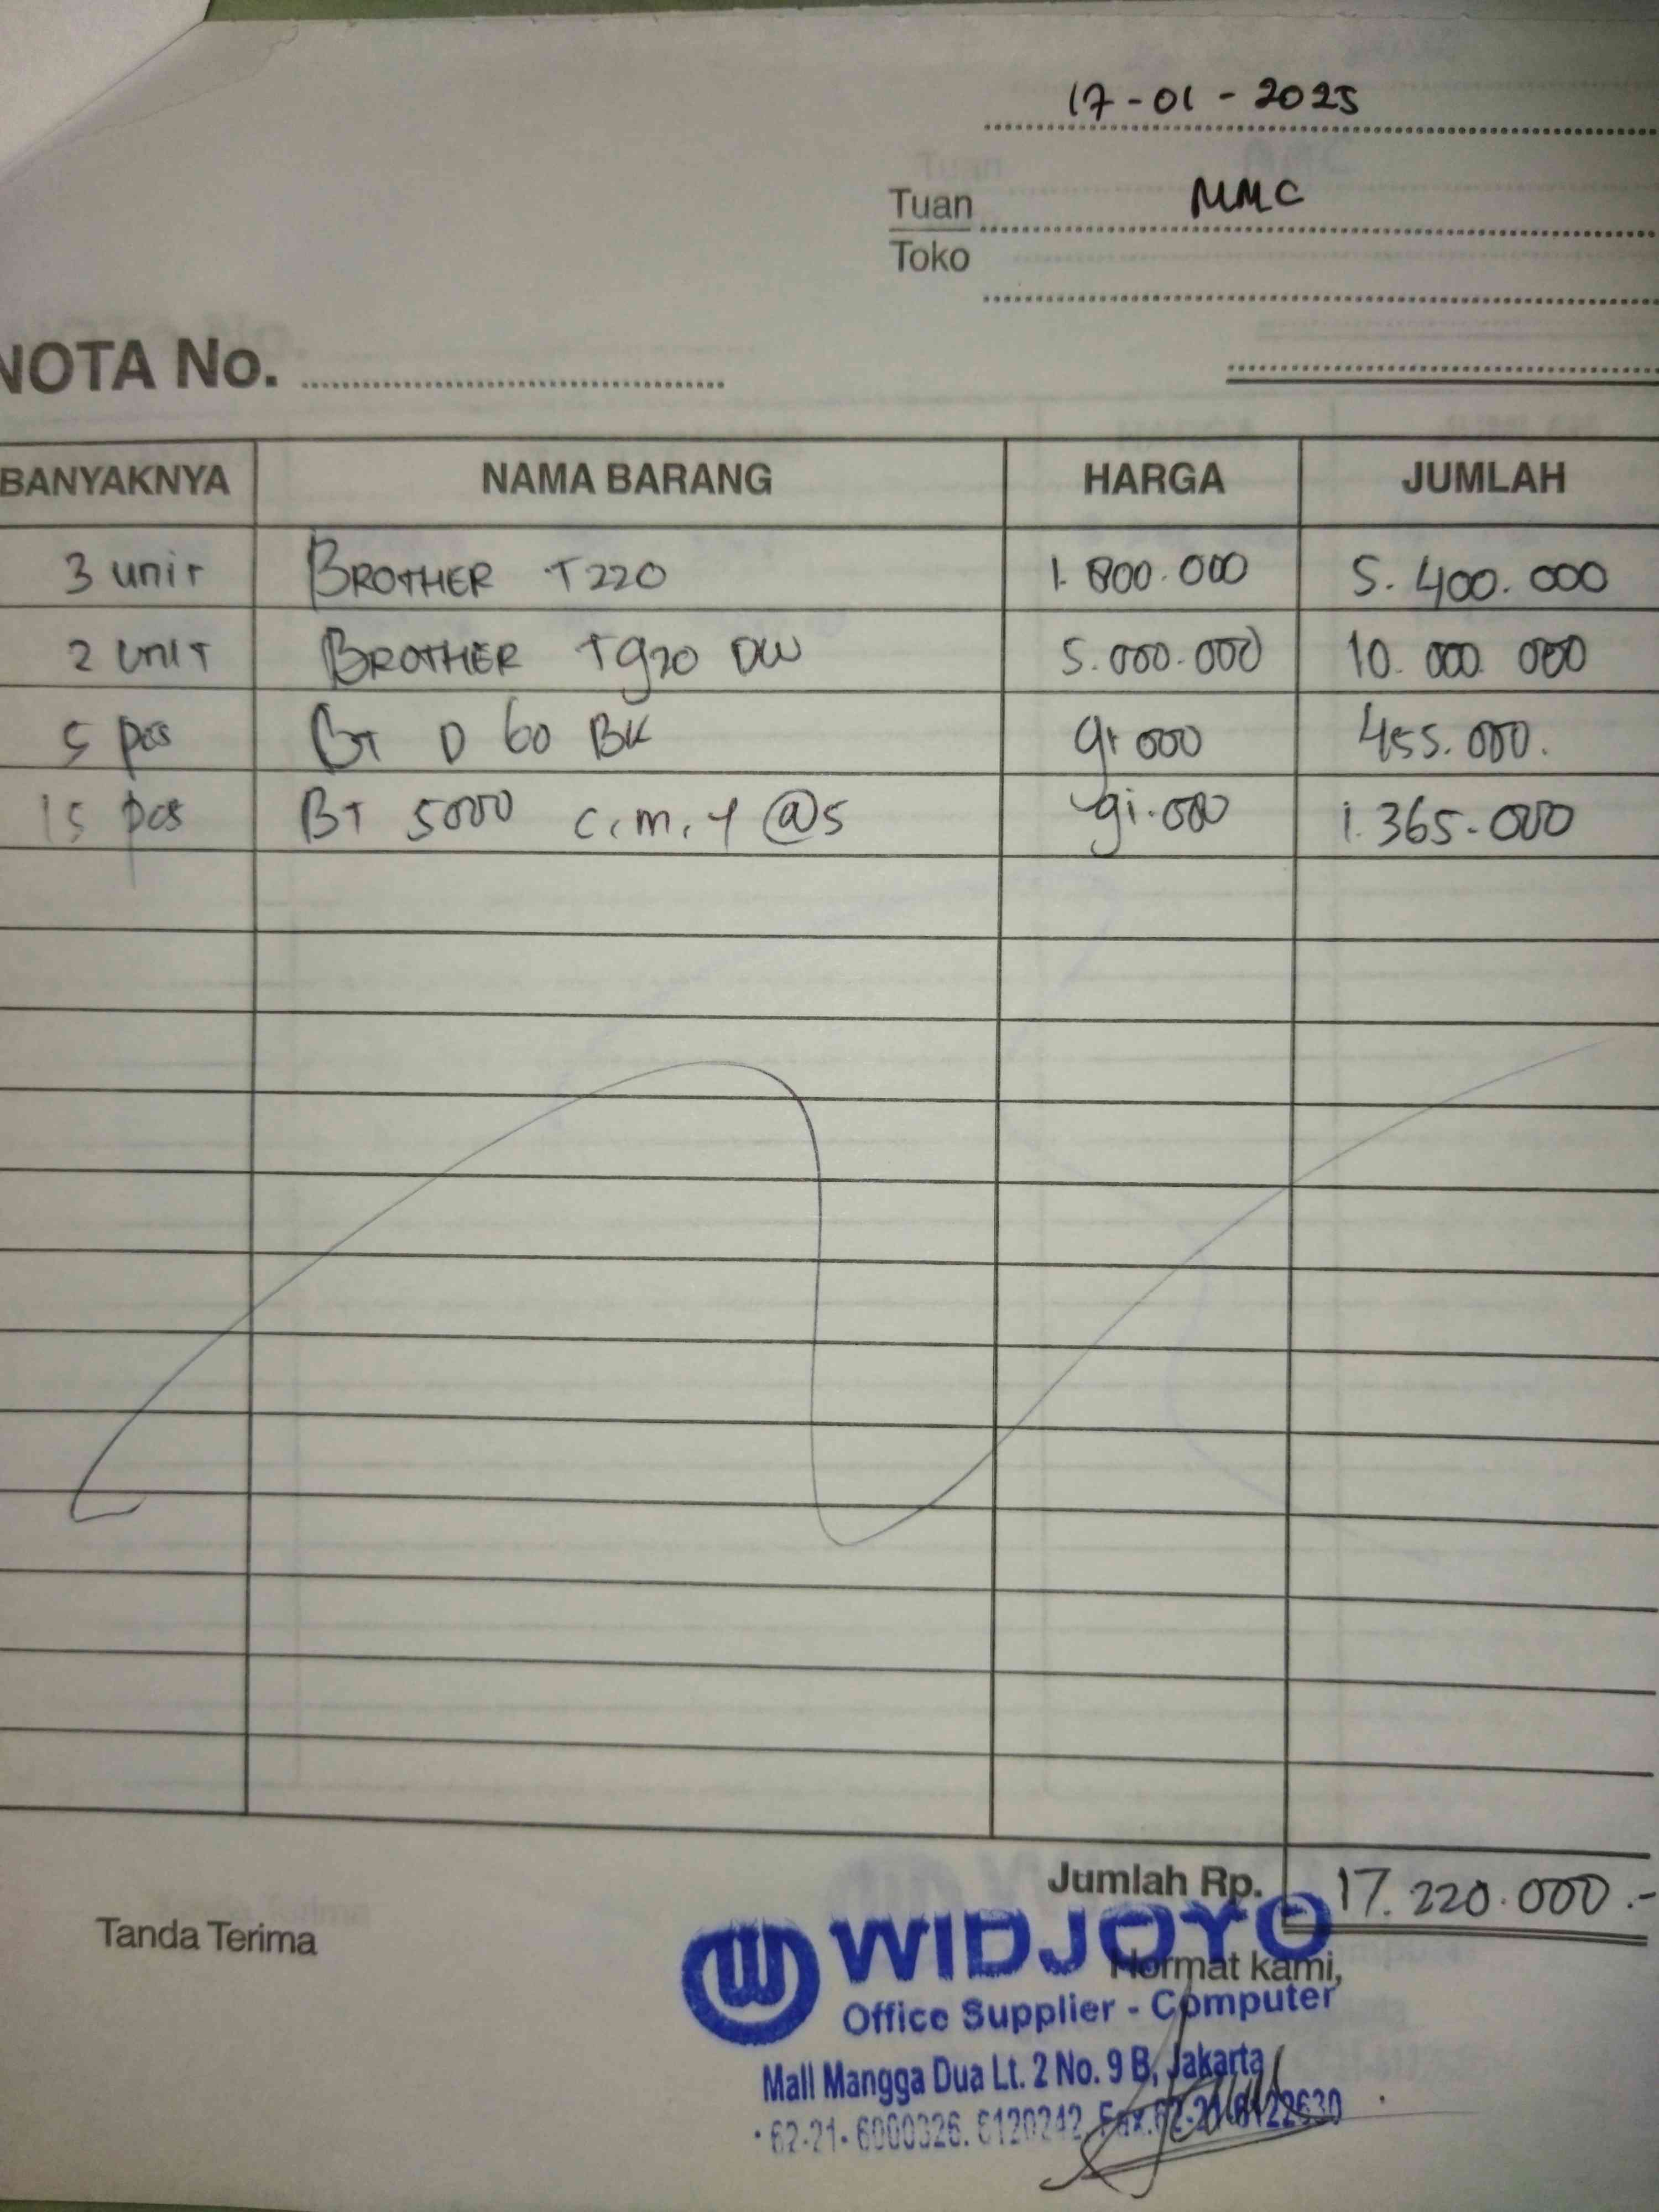 17-01-2025
Tuan MMC
Toko
NOTA No.
BANYAKNYA NAMA BARANG HARGA JUMLAH
3 unit BROTHER T220 1.800.000 5.400.000
2 UNIT BROTHER T920 DW 5.000.000 10.000.000
5 pcs BT D 60 BK 91.000 455.000.
15 pcs BT 5000 C.M.Y @5 91.000 1.365.000
Jumlah Rp. 17.220.000.-
Tanda Terima
Hormat kami,
WIDJOYO
Office Supplier - Computer
Mall Mangga Dua Lt. 2 No. 9 B, Jakarta
62-21-6000326. 6120242, Fax.62-21-6122630